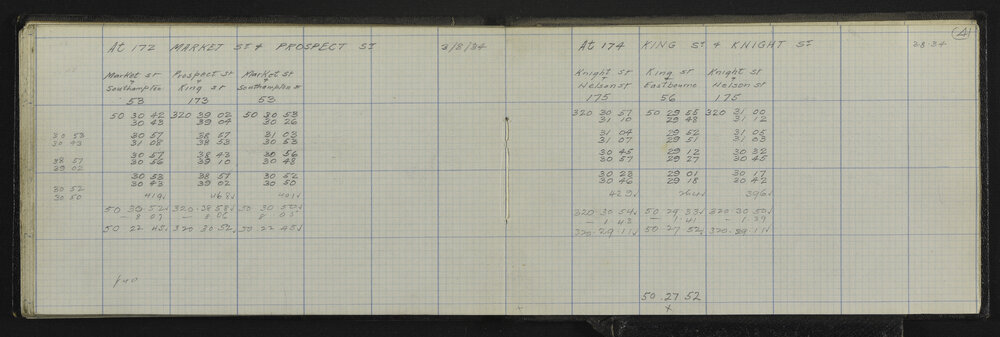 At 172 MARKET ST & PROSPECT ST 3/8/34
Market st Prospect st Market st
& & &
Southampton King st Southampton st
53 173 53
50 30 42 320 39 02 50 30 53
30 43 39 04 30 26
30 53 30 57 38 57 31 03
30 43 31 08 38 53 30 53
30 57 38 43 30 56
38 57 30 56 39 10 30 48
39 02
30 53 38 57 30 52
30 52 30 43 39 02 30 50
30 50 419 468 401
50 30 52 320 38 58 50 30 50
- 8 07 - 8 06 8 05
50 22 45 320 30 52 50 22 45
At 174 KING ST & KNIGHT ST 3.8.34
41
Knight st King st Knight st
& & &
Nelson st Eastbourne Nelson st
175 56 175
320 30 57 50 29 55 320 31 00
31 10 29 48 31 12
31 04 29 52 31 05
31 07 29 51 31 03
30 45 29 12 30 32
30 57 29 27 30 45
30 28 29 01 30 17
30 46 29 18 30 42
429 264 396
320 30 54 50 29 33 320 30 50
- 1 43 - 1 41 - 1 39
320 29 11 50 27 52 320 29 11
50 27 52
x x